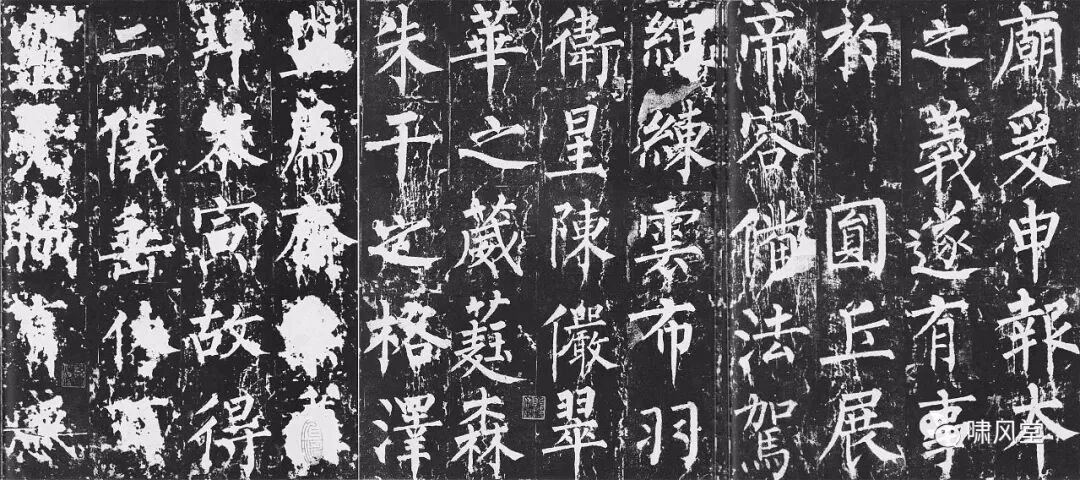 廟爰申報本
之義遂有事
於圓丘展
帝容備法駕
組練雲布羽
衛星陳儼翠
華之葳蕤森
朱干之格澤
為齋
彝恭寅故得
二儀垂
職
嘯风堂